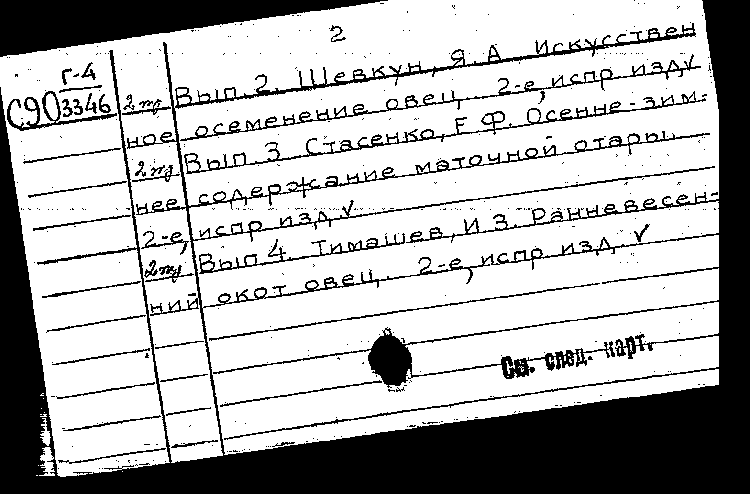 2
Г-4
С90 3346
2 тэ Вып. 2. Шевкун, Я.А. Искусствен
ное осеменение овец. 2-е, испр изд ✓
2 тэ Вып. 3 Стасенко, Е Ф. Осенне-зим-
нее содержание маточной отары.
2-е, испр изд ✓
2 тэ Вып 4. Тимашев, И З. Ранневесен-
ний окот овец. 2-е, испр изд. ✓
См. след. карт.